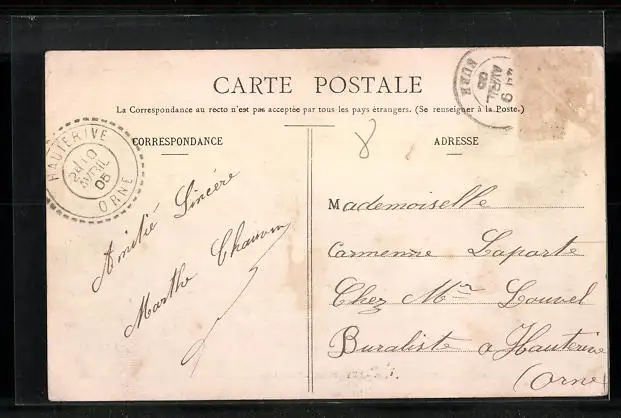 CARTE POSTALE
La Correspondance au recto n'est pas acceptée par tous les pays étrangers. (Se renseigner à la Poste.)
CORRESPONDANCE
ADRESSE
HAUTERIVE
10
AVRIL
05
ORNE
EURE
9
AVRIL
05
Amitié Sincère
Marthe Chauvin
Mademoiselle
Carmenne Laporte
Chez Mr Louvel
Buraliste a Hauterive
(Orne